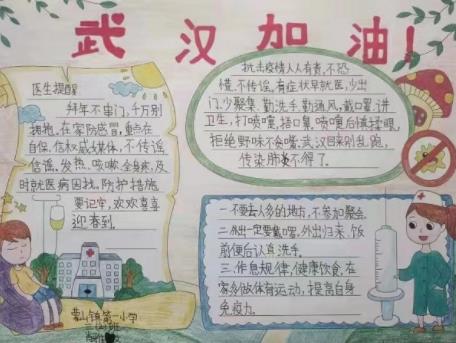 武汉加油!
医生提醒
拜年不串门,千万别
拥抱,在家防感冒,重点在
自保,信权威媒体,不传谣
信谣,发热,咳嗽,全身疼,及
时就医病困扰,防护措施
要记牢,欢欢喜喜
迎春到.
抗击疫情人人有责,不恐
慌,不传谣,有症状早就医,少出
门,少聚集,勤洗手,勤通风,戴口罩,讲
卫生,打喷嚏,捂口鼻,喷嚏后慎揉眼,
拒绝野味不贪嘴,武汉回来别乱跑,
传染肺炎不得了.
一.不要去人多的地方,不参加聚会.
二.外出一定要戴口罩,外出归来,饭
前便后认真洗手.
三.作息规律,健康饮食,在
家多做体育运动,提高自身
免疫力.
第一小学